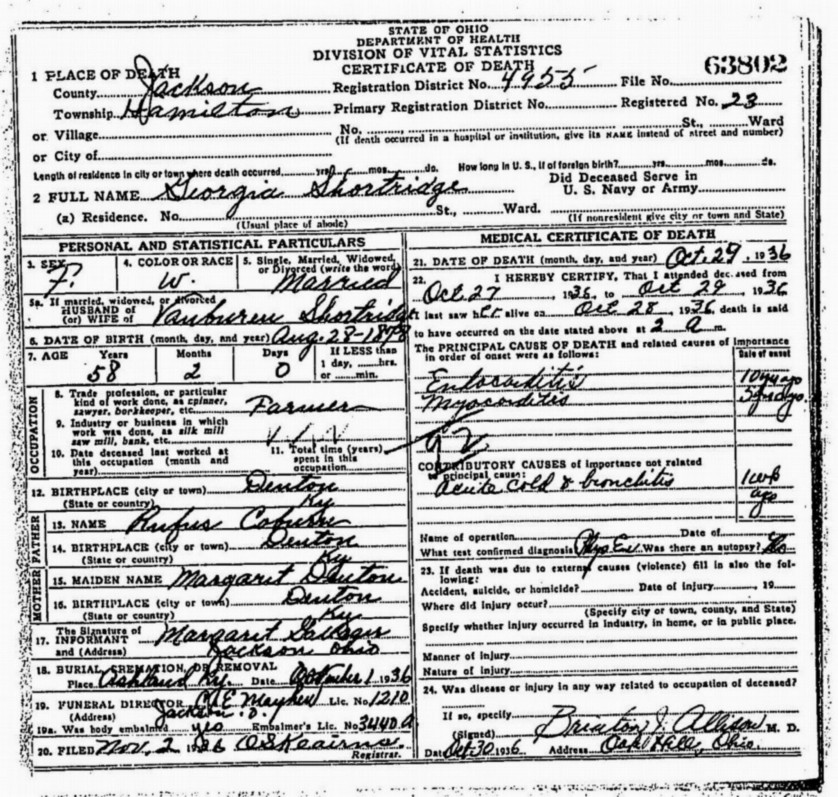 STATE OF OHIO
DEPARTMENT OF HEALTH
DIVISION OF VITAL STATISTICS
CERTIFICATE OF DEATH
63802
1 PLACE OF DEATH
County Jackson Registration District No. 4955 File No.
Township Hamilton Primary Registration District No. Registered No. 23
or Village No. St., Ward
(If death occurred in a hospital or institution, give its NAME instead of street and number)
or City of
Length of residence in city or town where death occurred yrs. mos. ds. How long in U. S., if of foreign birth? yrs. mos. ds.
2 FULL NAME Georgia Shortridge Did Deceased Serve in U. S. Navy or Army
(a) Residence. No. St., Ward.
(Usual place of abode) (If nonresident give city or town and State)
PERSONAL AND STATISTICAL PARTICULARS
3. SEX F. 4. COLOR OR RACE W. 5. Single, Married, Widowed, or Divorced (write the word) Married
5a. If married, widowed, or divorced
HUSBAND of
(or) WIFE of Vanburen Shortridge
6. DATE OF BIRTH (month, day, and year) Aug-28-1878
7. AGE Years 58 Months 2 Days 0 If LESS than 1 day, hrs. or min.
OCCUPATION
8. Trade, profession, or particular
kind of work done, as spinner,
sawyer, bookkeeper, etc. Farmer
9. Industry or business in which
work was done, as silk mill
saw mill, bank, etc.
10. Date deceased last worked at
this occupation (month and
year)
11. Total time (years)
spent in this
occupation
12. BIRTHPLACE (city or town) Denton
(State or country) Ky
FATHER
13. NAME Rufus Coburn
14. BIRTHPLACE (city or town) Denton
(State or country) Ky
MOTHER
15. MAIDEN NAME Margarit Denton
16. BIRTHPLACE (city or town) Denton
(State or country) Ky
17. The Signature of
INFORMANT Margarit
and (Address) Jackson Ohio
18. BURIAL, CREMATION, OR REMOVAL
Place Ashland Ky. Date November 1 1936
19. FUNERAL DIRECTOR C E Mayhew Lic. No. 1210
(Address) Jackson. O
19a. Was body embalmed yes Embalmer's Lic. No. 3440 A
20. FILED Nov. 2 1936 O S Kearns
Registrar.
MEDICAL CERTIFICATE OF DEATH
21. DATE OF DEATH (month, day, and year) Oct. 29, 1936
22. I HEREBY CERTIFY, That I attended deceased from
Oct 27, 1936, to Oct 29, 1936
I last saw her alive on Oct 28, 1936, death is said
to have occurred on the date stated above at 2 a m.
The PRINCIPAL CAUSE OF DEATH and related causes of importance
in order of onset were as follows: Date of onset
Endocarditis 10 yr ago
Myocarditis
92
CONTRIBUTORY CAUSES of importance not related
to principal cause:
Acute Cold & bronchitis 1 wk
ago
Name of operation Date of
What test confirmed diagnosis Phys Ex Was there an autopsy? No
23. If death was due to external causes (violence) fill in also the fol-
lowing:
Accident, suicide, or homicide? Date of injury , 19
Where did injury occur?
(Specify city or town, county, and State)
Specify whether injury occurred in industry, in home, or in public place.
Manner of injury
Nature of injury
24. Was disease or injury in any way related to occupation of deceased?
If so, specify
(Signed) Brinton J. Allison M. D.
Date Oct 30 1936 Address Oak Hill, Ohio.